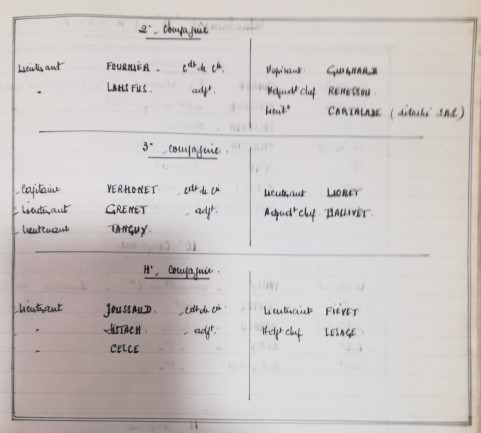 2e. Compagnie
Lieutenant FOURNIER. - cdt de Cie. Aspirant GUIGNARD
" LANSFUS. adjt. Adjudt chef RENESSON.
Lieutt CARTALADE (détaché SAS.)
3e. Compagnie.
- Capitaine VERMONET. - cdt de cie Lieutenant LIONET
- Lieutenant GRENET - adjt. Adjudt chef. BALLIVET.
- Lieutenant TANGUY.
4e. Compagnie.
- Lieutenant JOUSSAUD. - cdt de cie. Lieutenant FIEVET
" - adjt. Adjt chef LESAGE.
" CELCE